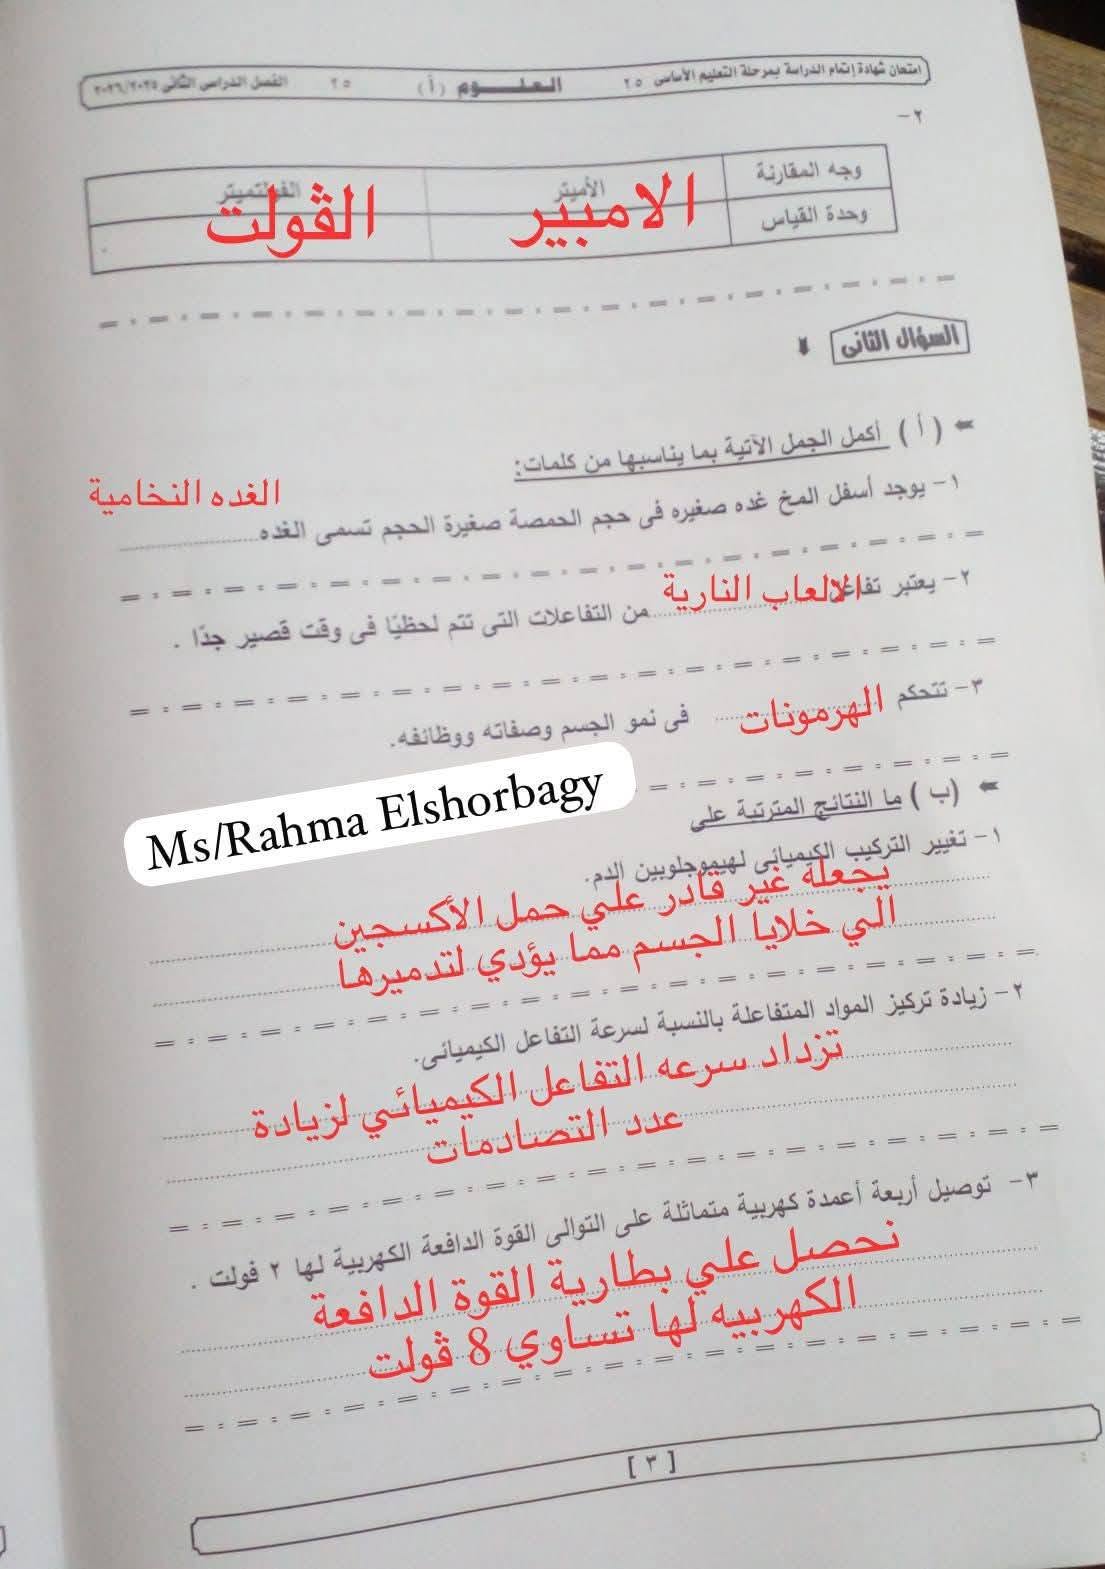 امتحان شهادة إتمام الدراسة بمرحلة التعليم الأساسى ٢٥ العلـــوم (أ) ٢٥ الفصل الدراسى الثانى ٢٠٢٦/٢٠٢٥
٢-
وجه المقارنة الأميتر الفولتميتر
وحدة القياس الامبير الڤولت
السؤال الثانى
(أ) أكمل الجمل الآتية بما يناسبها من كلمات:
الغده النخامية
١- يوجد أسفل المخ غده صغيره فى حجم الحمصة صغيرة الحجم تسمى الغده
٢- يعتبر تفاعل الالعاب النارية من التفاعلات التى تتم لحظيًا فى وقت قصير جدًا .
٣- تتحكم الهرمونات فى نمو الجسم وصفاته ووظائفه.
Ms/Rahma Elshorbagy
(ب) ما النتائج المترتبة على
١- تغيير التركيب الكيميائى لهيموجلوبين الدم.
يجعله غير قادر علي حمل الأكسجين
الي خلايا الجسم مما يؤدي لتدميرها
٢- زيادة تركيز المواد المتفاعلة بالنسبة لسرعة التفاعل الكيميائى.
تزداد سرعه التفاعل الكيميائي لزيادة
عدد التصادمات
٣- توصيل أربعة أعمدة كهربية متماثلة على التوالى القوة الدافعة الكهربية لها ٢ فولت .
نحصل علي بطارية القوة الدافعة
الكهربيه لها تساوي 8 ڤولت
[٣]